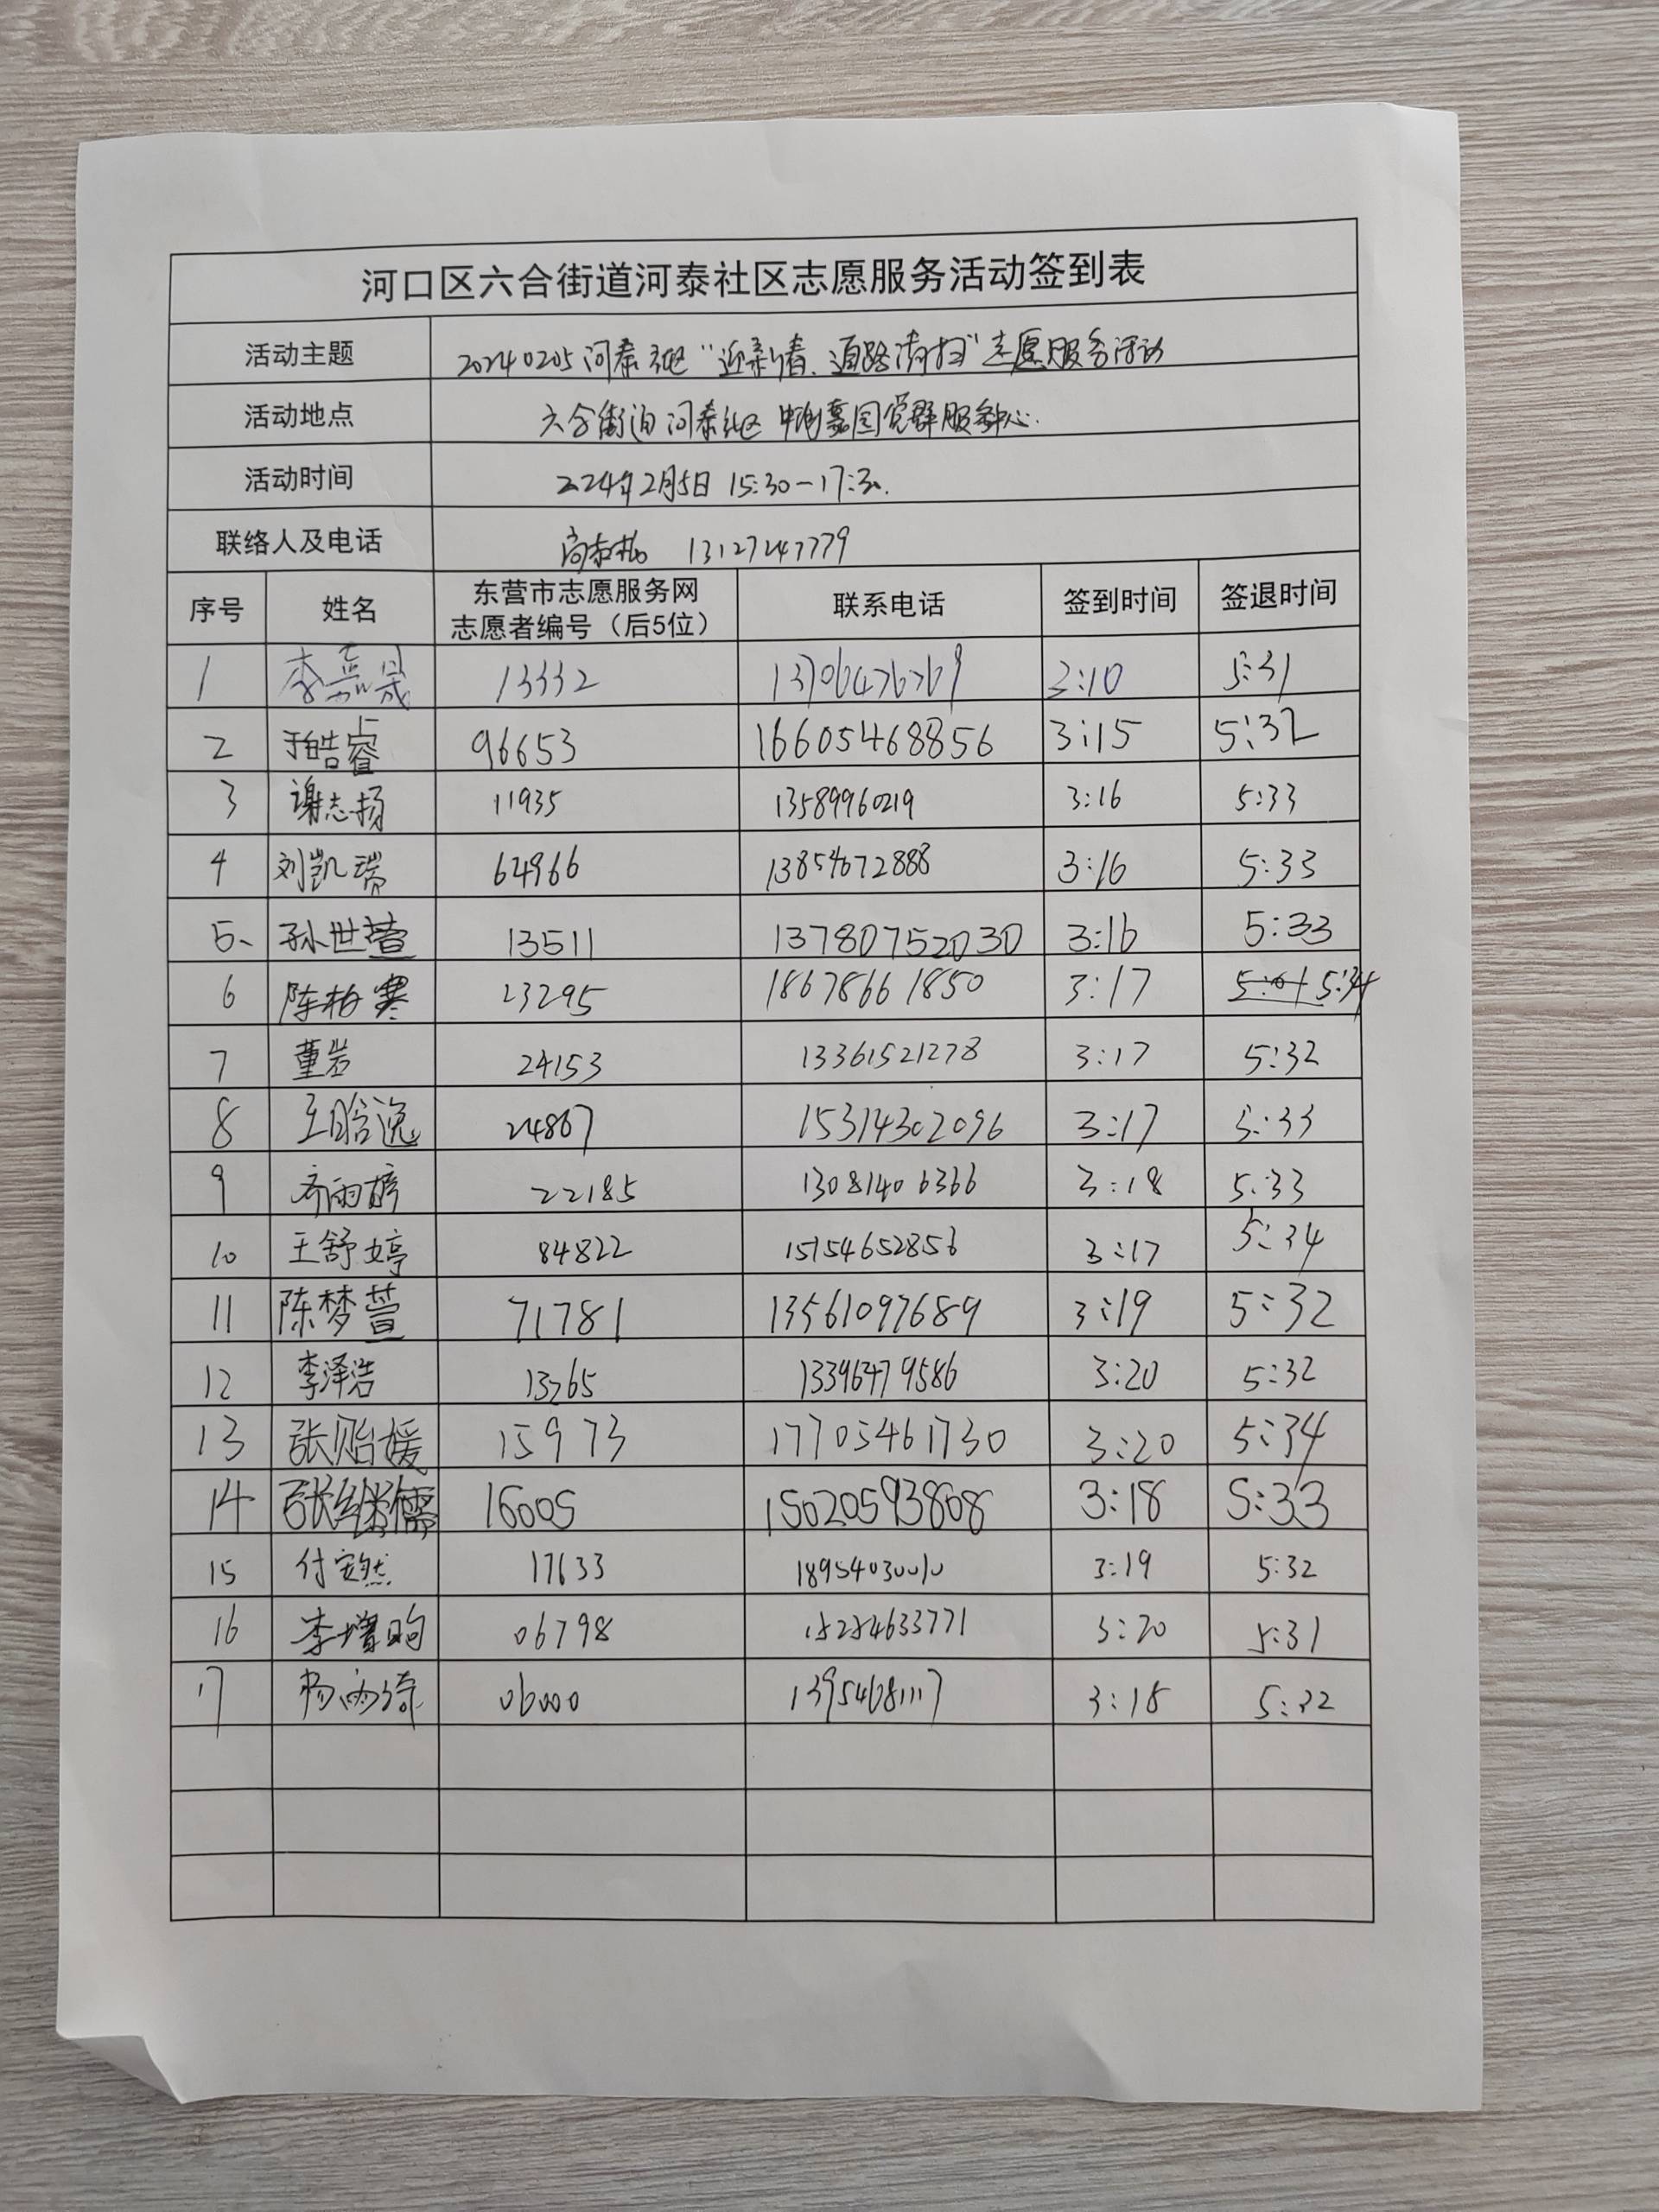 河口区六合街道河泰社区志愿服务活动签到表
活动主题 20240205河泰社区“迎新春、道路清扫”志愿服务活动
活动地点 六合街道河泰社区 党群服务中心.
活动时间 2024年2月5日 15:30-17:30.
联络人及电话 13127247779
序号 姓名 东营市志愿服务网 志愿者编号（后5位） 联系电话 签到时间 签退时间
1 李嘉晟 13332 13706476769 3:10 5:31
2 于皓睿 96653 16605468856 3:15 5:32
3 谢志扬 11935 13589960219 3:16 5:33
4 刘凯瑞 64966 13854672888 3:16 5:33
5、 孙世萱 13511 13780752030 3:16 5:33
6 陈柏寒 23295 18678661850 3:17 5:34
7 董岩 24153 13361521278 3:17 5:32
8 王晗逸 24867 15314302096 3:17 5:33
9 齐雨婷 22185 13081406366 3:18 5:33
10 王舒婷 84822 15154652856 3:17 5:34
11 陈梦萱 71781 13561097689 3:19 5:32
12 李泽浩 13265 13396479586 3:20 5:32
13 张贻媛 15973 17705461730 3:20 5:34
14 张继儒 16005 15020593808 3:18 5:33
15 付安然 17633 18954030010 3:19 5:32
16 李增昀 06798 3:20 5:31
17 杨雨绮 06000 13954681117 3:18 5:32